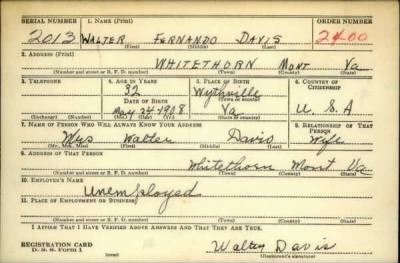 SERIAL NUMBER 1. NAME (Print) ORDER NUMBER
2013 WALTER FERNANDO DAVIS 2400
(First) (Middle) (Last)
2. ADDRESS (Print)
WHITETHORN Mont Va
(Number and street or R. F. D. number) (Town) (County) (State)
3. TELEPHONE 4. AGE IN YEARS 5. PLACE OF BIRTH 6. COUNTRY OF CITIZENSHIP
32 Wytheville
DATE OF BIRTH (Town or county)
May 24 1908 Va U. S. A
(Exchange) (Number) (Mo.) (Day) (Yr.) (State or country)
7. NAME OF PERSON WHO WILL ALWAYS KNOW YOUR ADDRESS 8. RELATIONSHIP OF THAT PERSON
Mrs Walter Davis Wife
(Mr., Mrs., Miss) (First) (Middle) (Last)
9. ADDRESS OF THAT PERSON
Whitethorn Mont Va
(Number and street or R. F. D. number) (Town) (County) (State)
10. EMPLOYER'S NAME
Unemployed
11. PLACE OF EMPLOYMENT OR BUSINESS
(Number and street or R. F. D. number) (Town) (County) (State)
I AFFIRM THAT I HAVE VERIFIED ABOVE ANSWERS AND THAT THEY ARE TRUE.
REGISTRATION CARD
D. S. S. Form 1 Walter Davis
(over) (Registrant's signature)